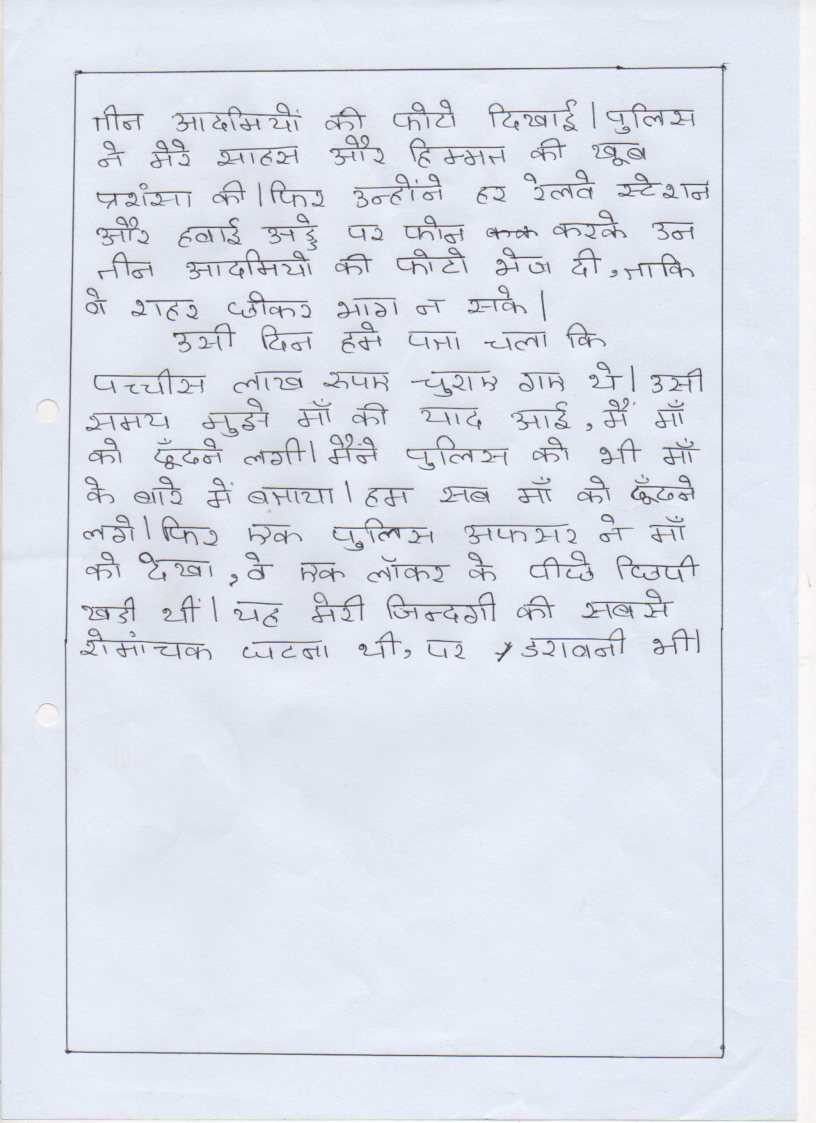 तीन आदमियों की फोटो दिखाई। पुलिस
ने मेरे साहस और हिम्मत की खूब
प्रशंसा की। फिर उन्होंने हर रेलवे स्टेशन
और हवाई अड्डे पर फोन करके उन
तीन आदमियो की फोटो भेज दी, ताकि
वे शहर छोकर भाग न सके।
उसी दिन हमे पता चला कि
पच्चीस लाख रुपए चुराए गए थे। उसी
समय मुझे माँ की याद आई, मैं माँ
को ढूँढने लगी। मैंने पुलिस को भी माँ
के बारे में बताया। हम सब माँ को ढूँढने
लगे। फिर एक पुलिस अफसर ने माँ
को देखा, वे एक लॉकर के पीछे छिपी
खडी थीं। यह मेरी जिन्दगी की सबसे
रोमांचक घटना थी, पर डरावनी भी।